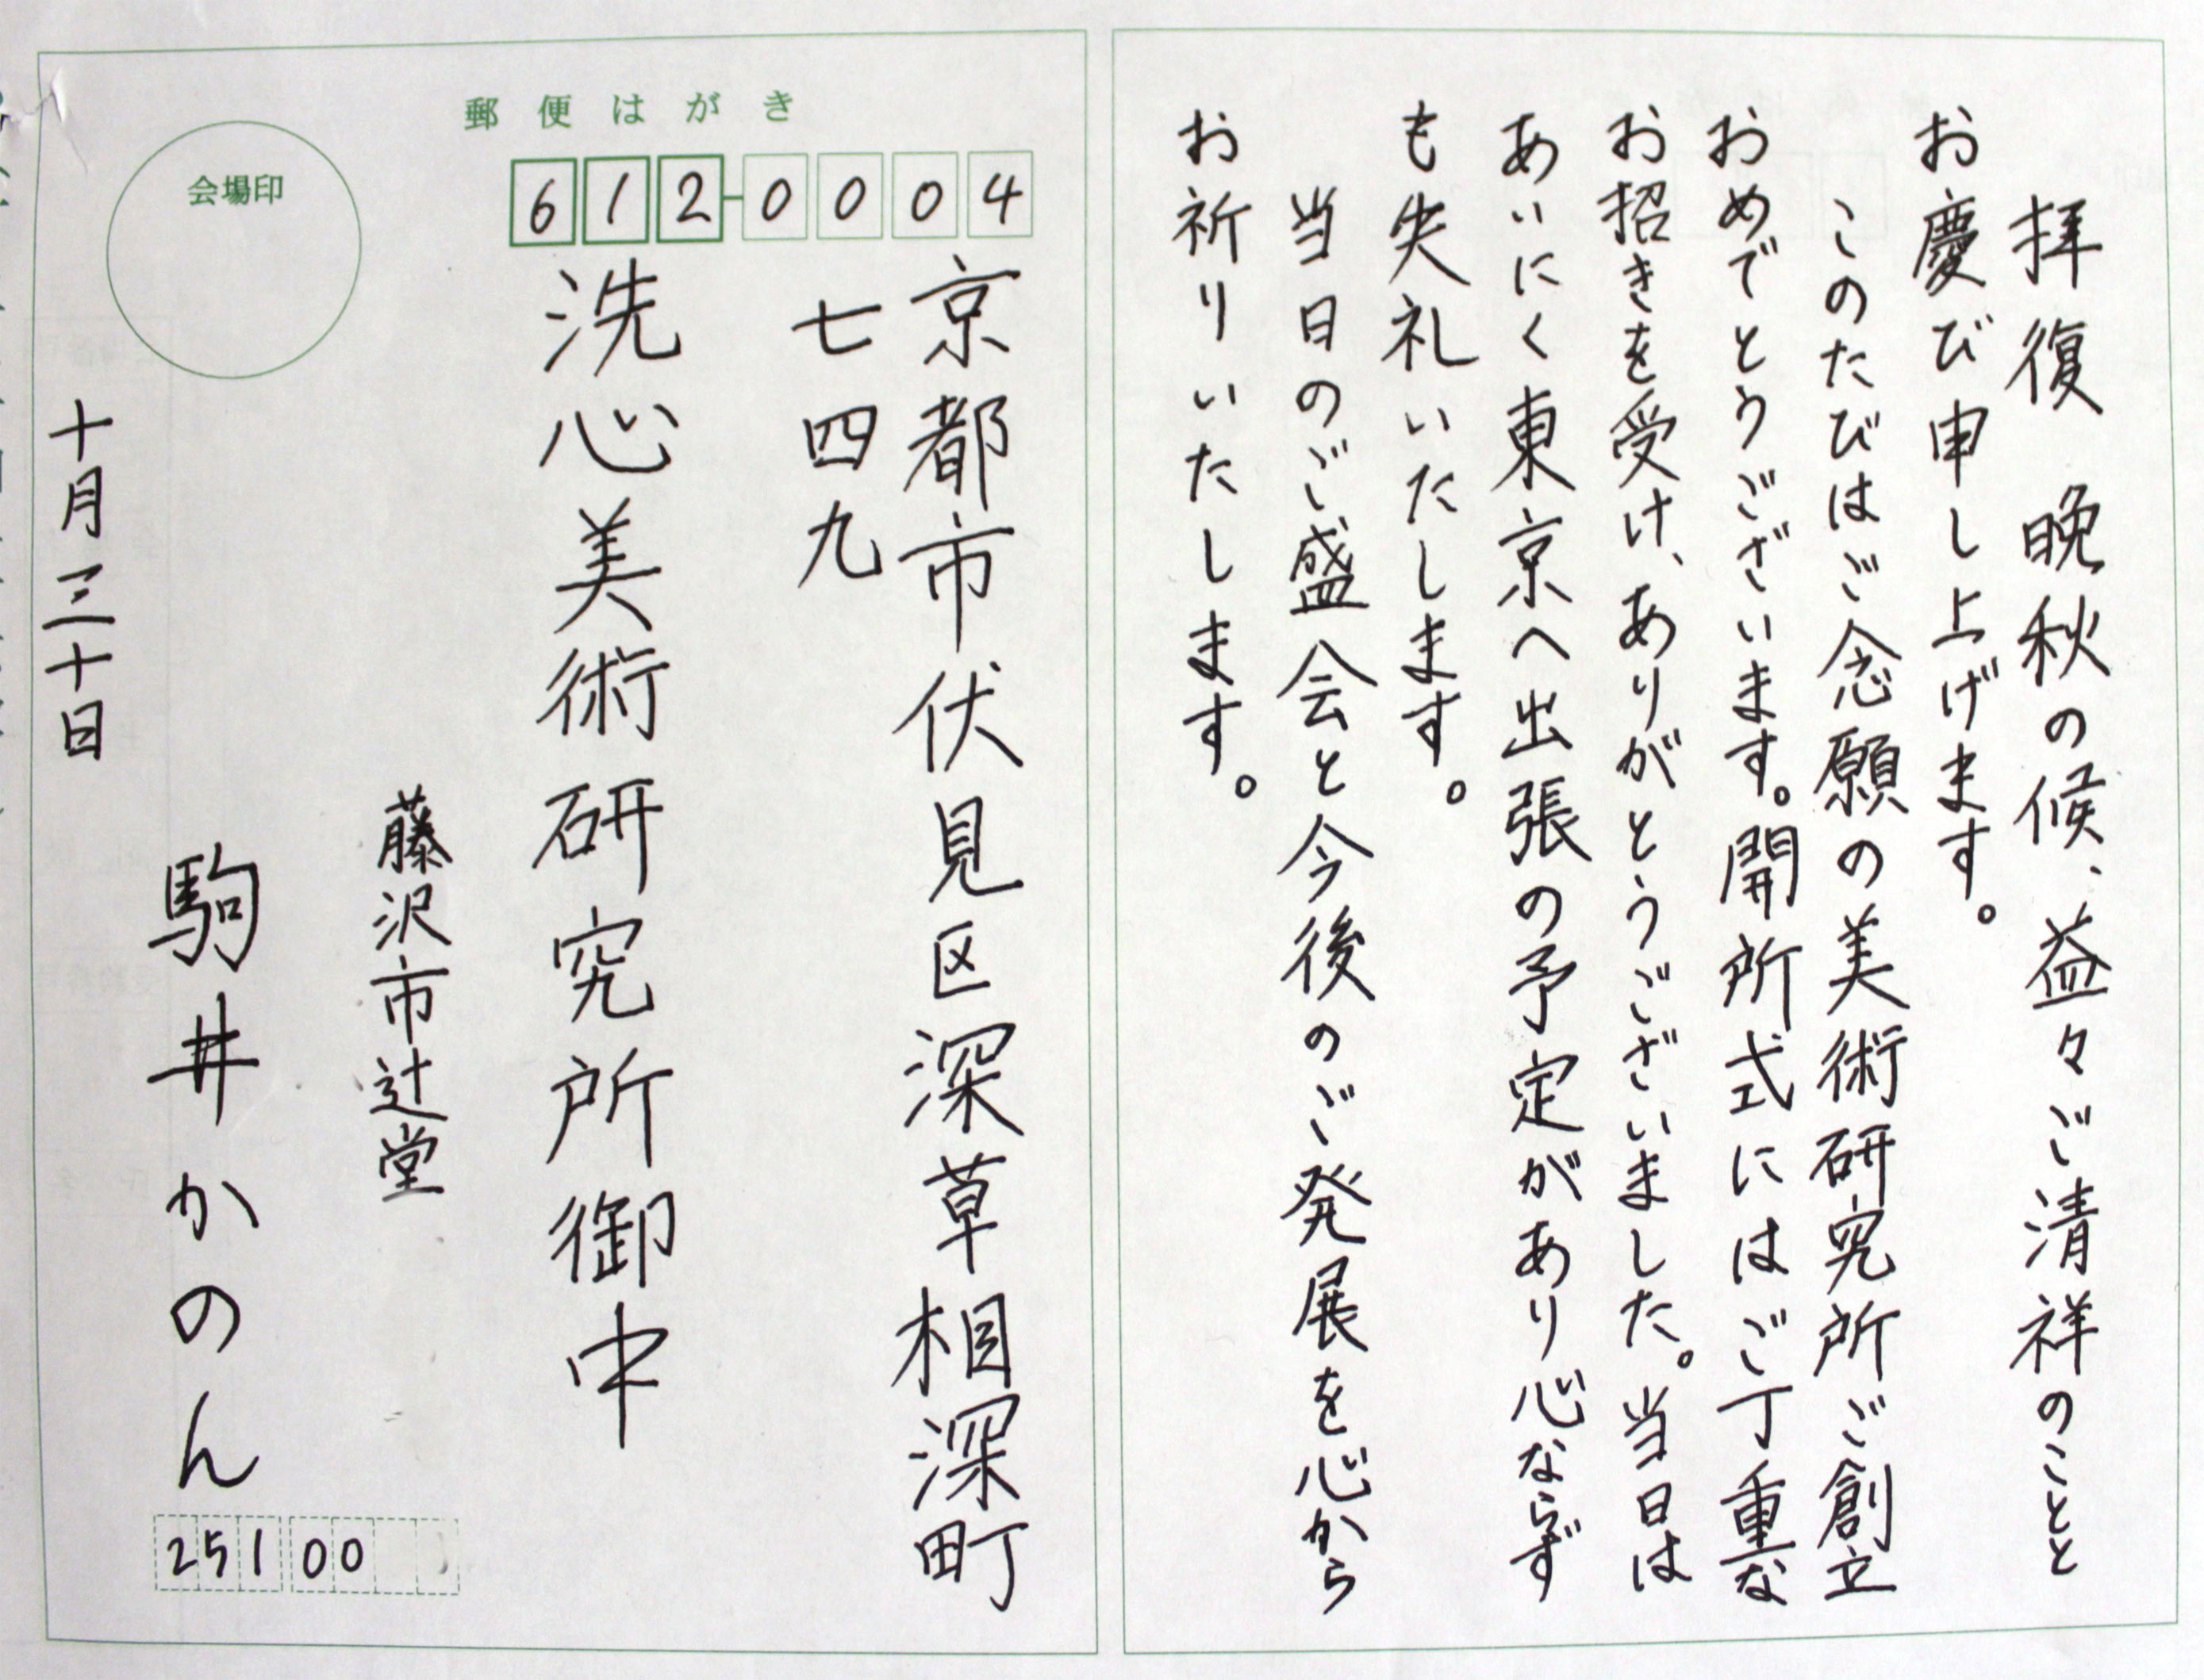 拝復　晩秋の候、益々ご清祥のことと
お慶び申し上げます。
このたびはご念願の美術研究所ご創立
おめでとうございます。開所式にはご丁重な
お招きを受け、ありがとうございました。当日は
あいにく東京へ出張の予定があり心ならず
も失礼いたします。
当日のご盛会と今後のご発展を心から
お祈りいたします。
郵便はがき
会場印
612-0004
京都市伏見区深草相深町
七四九
洗心美術研究所御中
藤沢市辻堂
駒井かのん
十月三十日
25100